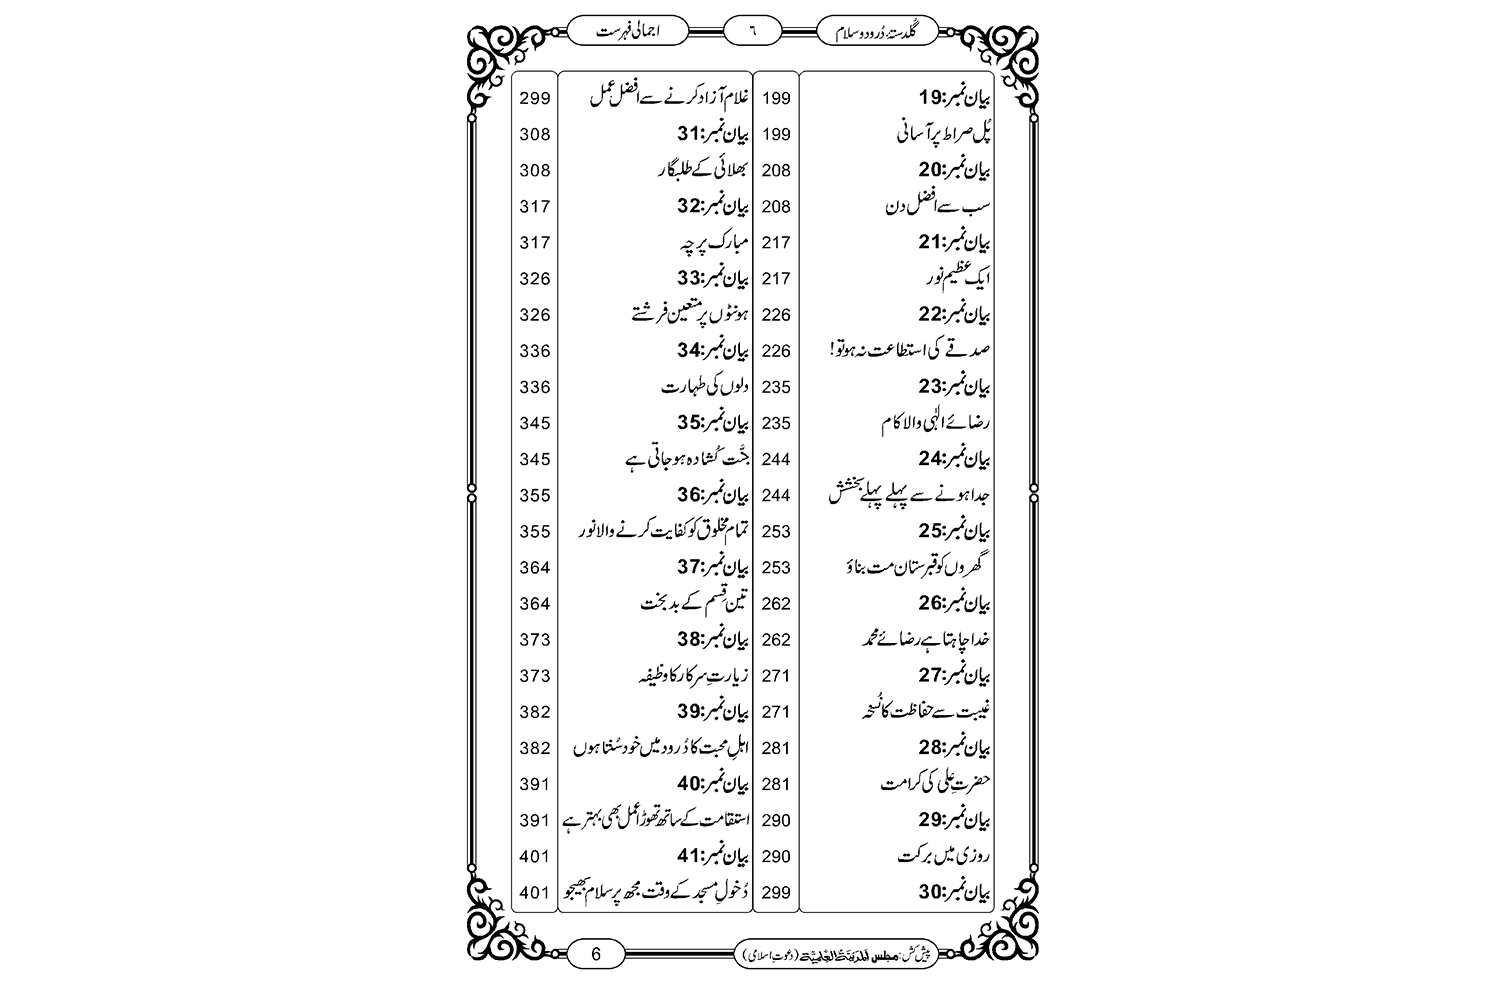 گلدستۂ دُرود و سلام
٦
اجمالی فہرست
بیان نمبر:19 199
پُل صراط پر آسانی 199
بیان نمبر:20 208
سب سے افضل دن 208
بیان نمبر:21 217
ایک عظیم نور 217
بیان نمبر:22 226
صدقے کی استطاعت نہ ہو تو! 226
بیان نمبر:23 235
رضائے الٰہی والا کام 235
بیان نمبر:24 244
جدا ہونے سے پہلے پہلے بخشش 244
بیان نمبر:25 253
گھروں کو قبرستان مت بناؤ 253
بیان نمبر:26 262
خدا چاہتا ہے رضائے محمد 262
بیان نمبر:27 271
غیبت سے حفاظت کا نُسخہ 271
بیان نمبر:28 281
حضرتِ علی کی کرامت 281
بیان نمبر:29 290
روزی میں برکت 290
بیان نمبر:30 299
غلام آزاد کرنے سے افضل عمل 299
بیان نمبر:31 308
بھلائی کے طلبگار 308
بیان نمبر:32 317
مبارک پرچہ 317
بیان نمبر:33 326
ہونٹوں پر متعین فرشتے 326
بیان نمبر:34 336
دلوں کی طہارت 336
بیان نمبر:35 345
جنَّت کُشادہ ہو جاتی ہے 345
بیان نمبر:36 355
تمام مخلوق کو کفایت کرنے والا نور 355
بیان نمبر:37 364
تین قِسم کے بدبخت 364
بیان نمبر:38 373
زیارتِ سرکار کا وظیفہ 373
بیان نمبر:39 382
اہلِ محبت کا دُرود میں خود سُنتا ہوں 382
بیان نمبر:40 391
استقامت کے ساتھ تھوڑا عمل بھی بہتر ہے 391
بیان نمبر:41 401
دُخولِ مسجد کے وقت مجھ پر سلام بھیجو 401
پیش کش: مجلس المدینۃ العلمیۃ (دعوتِ اسلامی)
6